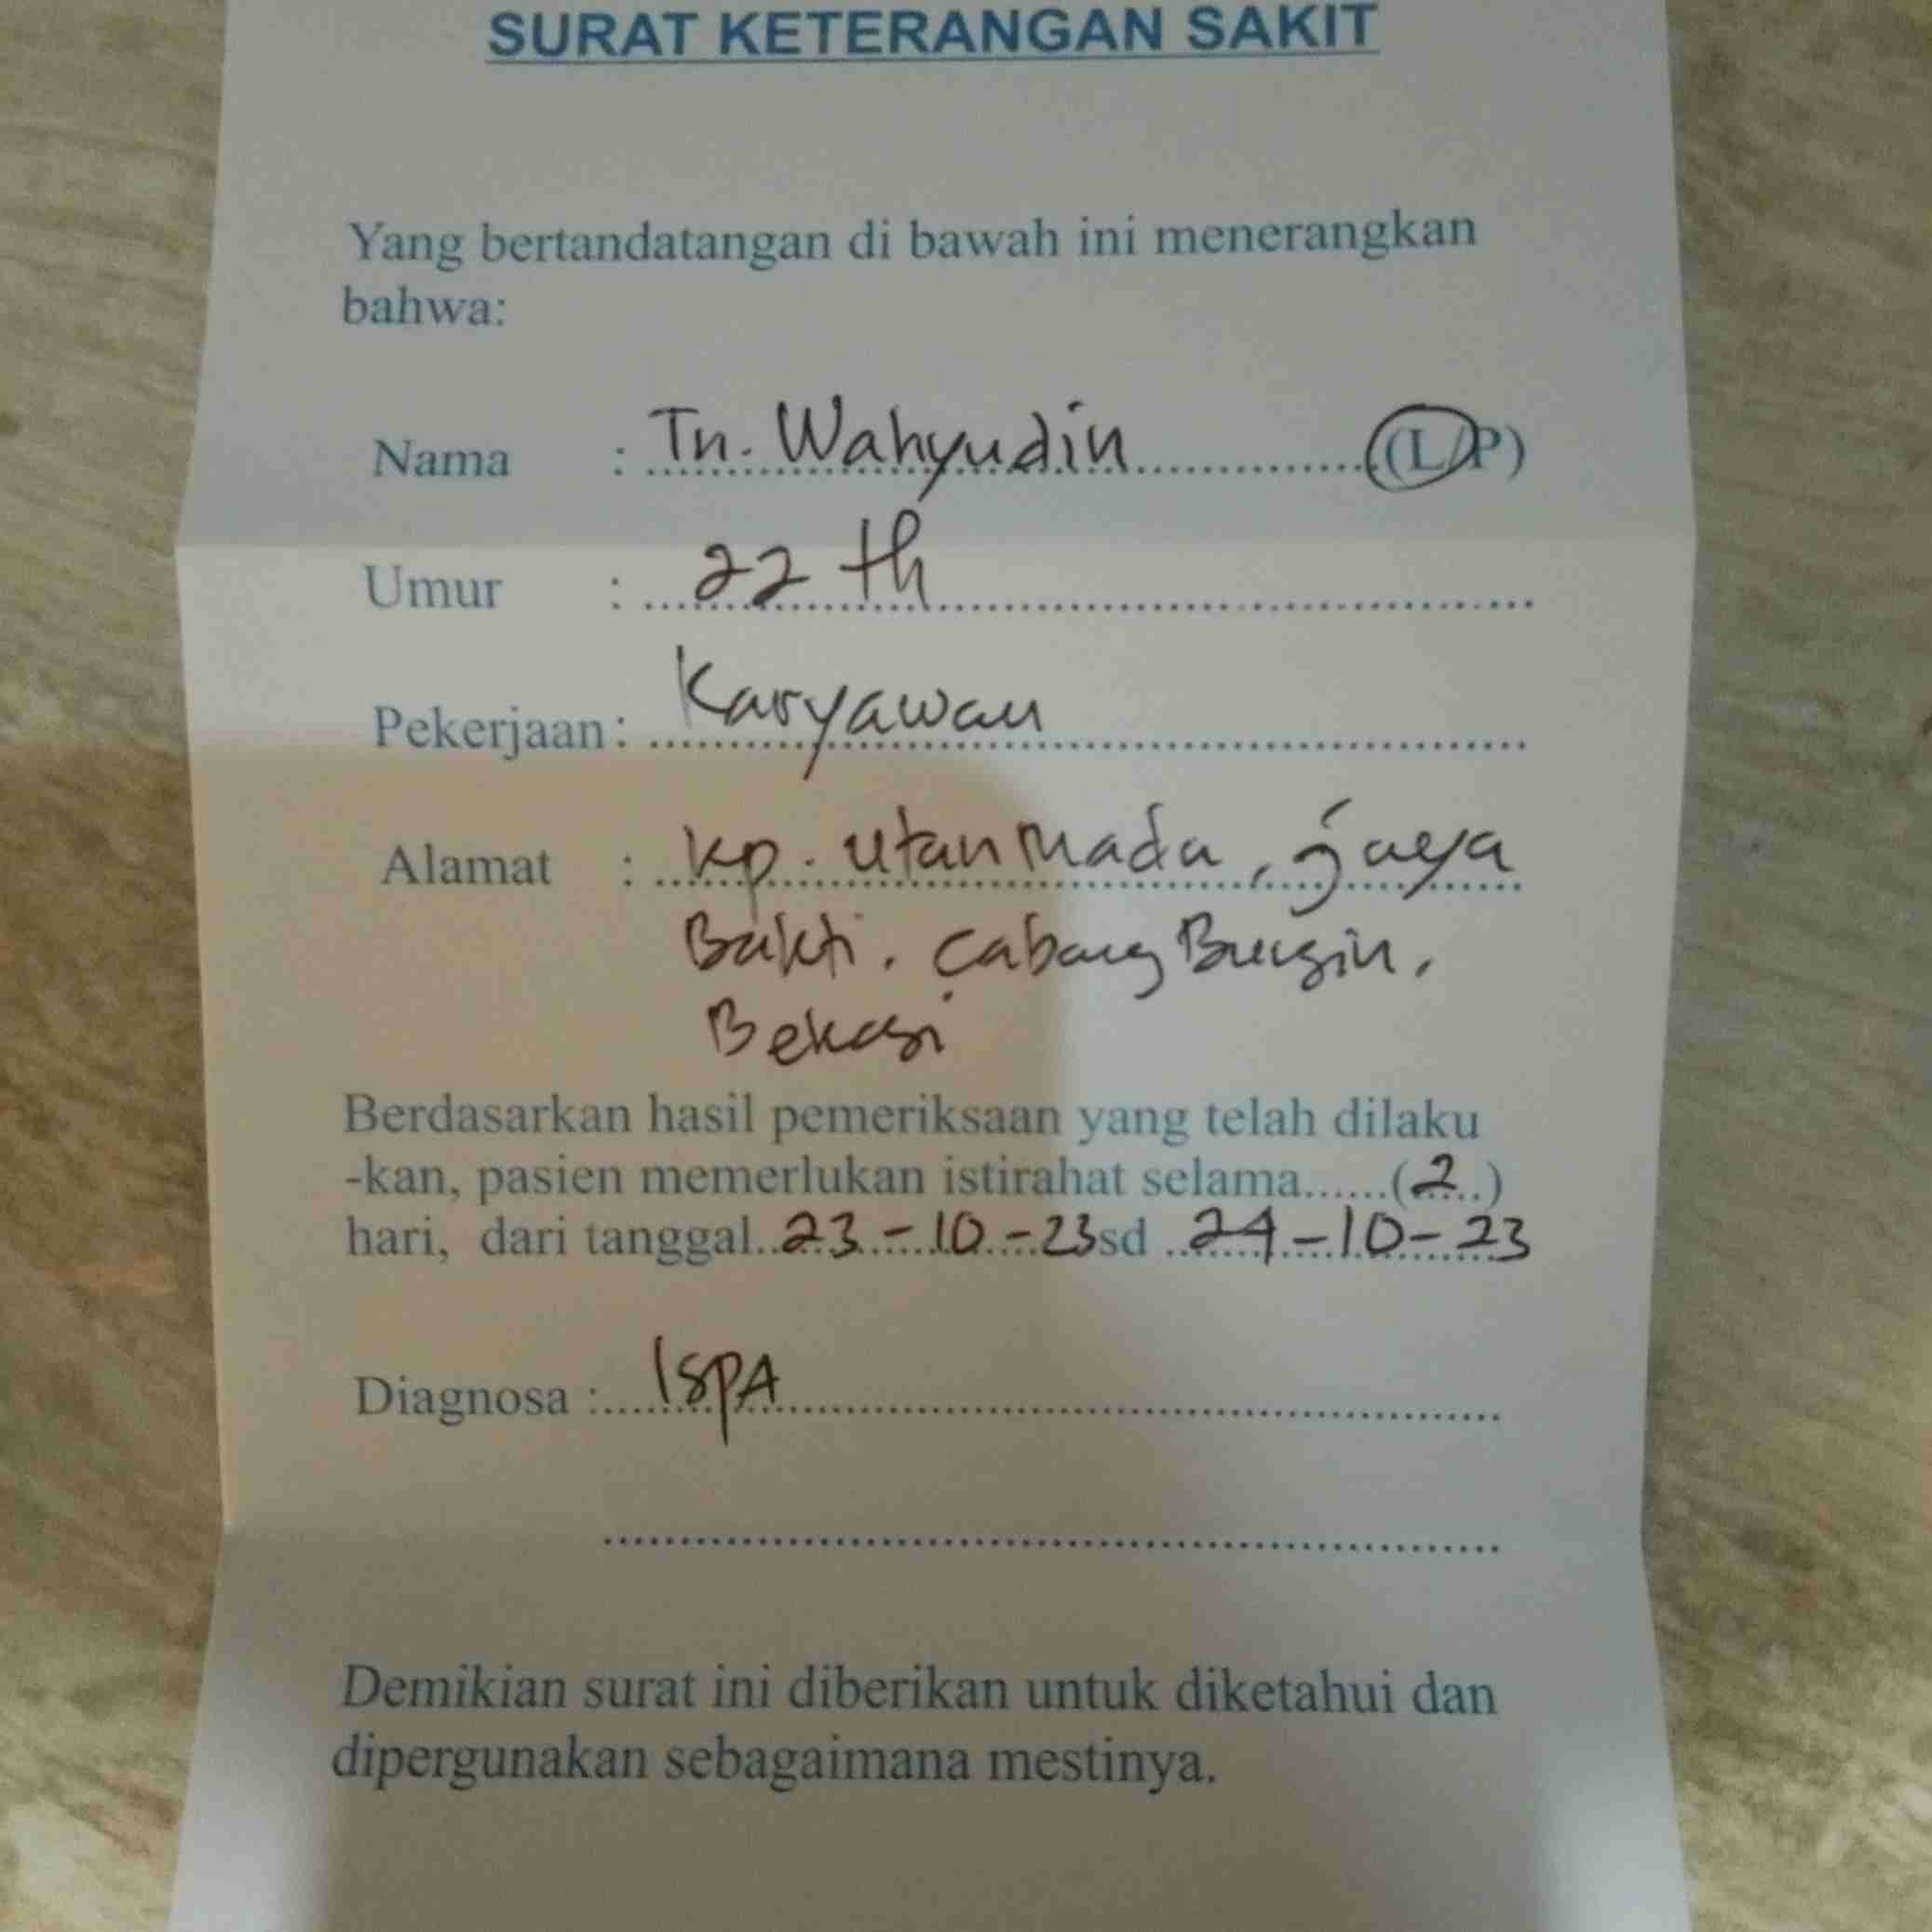 SURAT KETERANGAN SAKIT
Yang bertandatangan di bawah ini menerangkan
bahwa:
Nama : Tn. Wahyudin (L/P)
Umur : 22 th
Pekerjaan : Karyawan
Alamat : Kp. Utan Mada, jaya
Bakti. Cabang Bungin,
Bekasi
Berdasarkan hasil pemeriksaan yang telah dilaku
-kan, pasien memerlukan istirahat selama......(2)
hari, dari tanggal..23-10-23 sd ..24-10-23
Diagnosa : ISPA
Demikian surat ini diberikan untuk diketahui dan
dipergunakan sebagaimana mestinya.